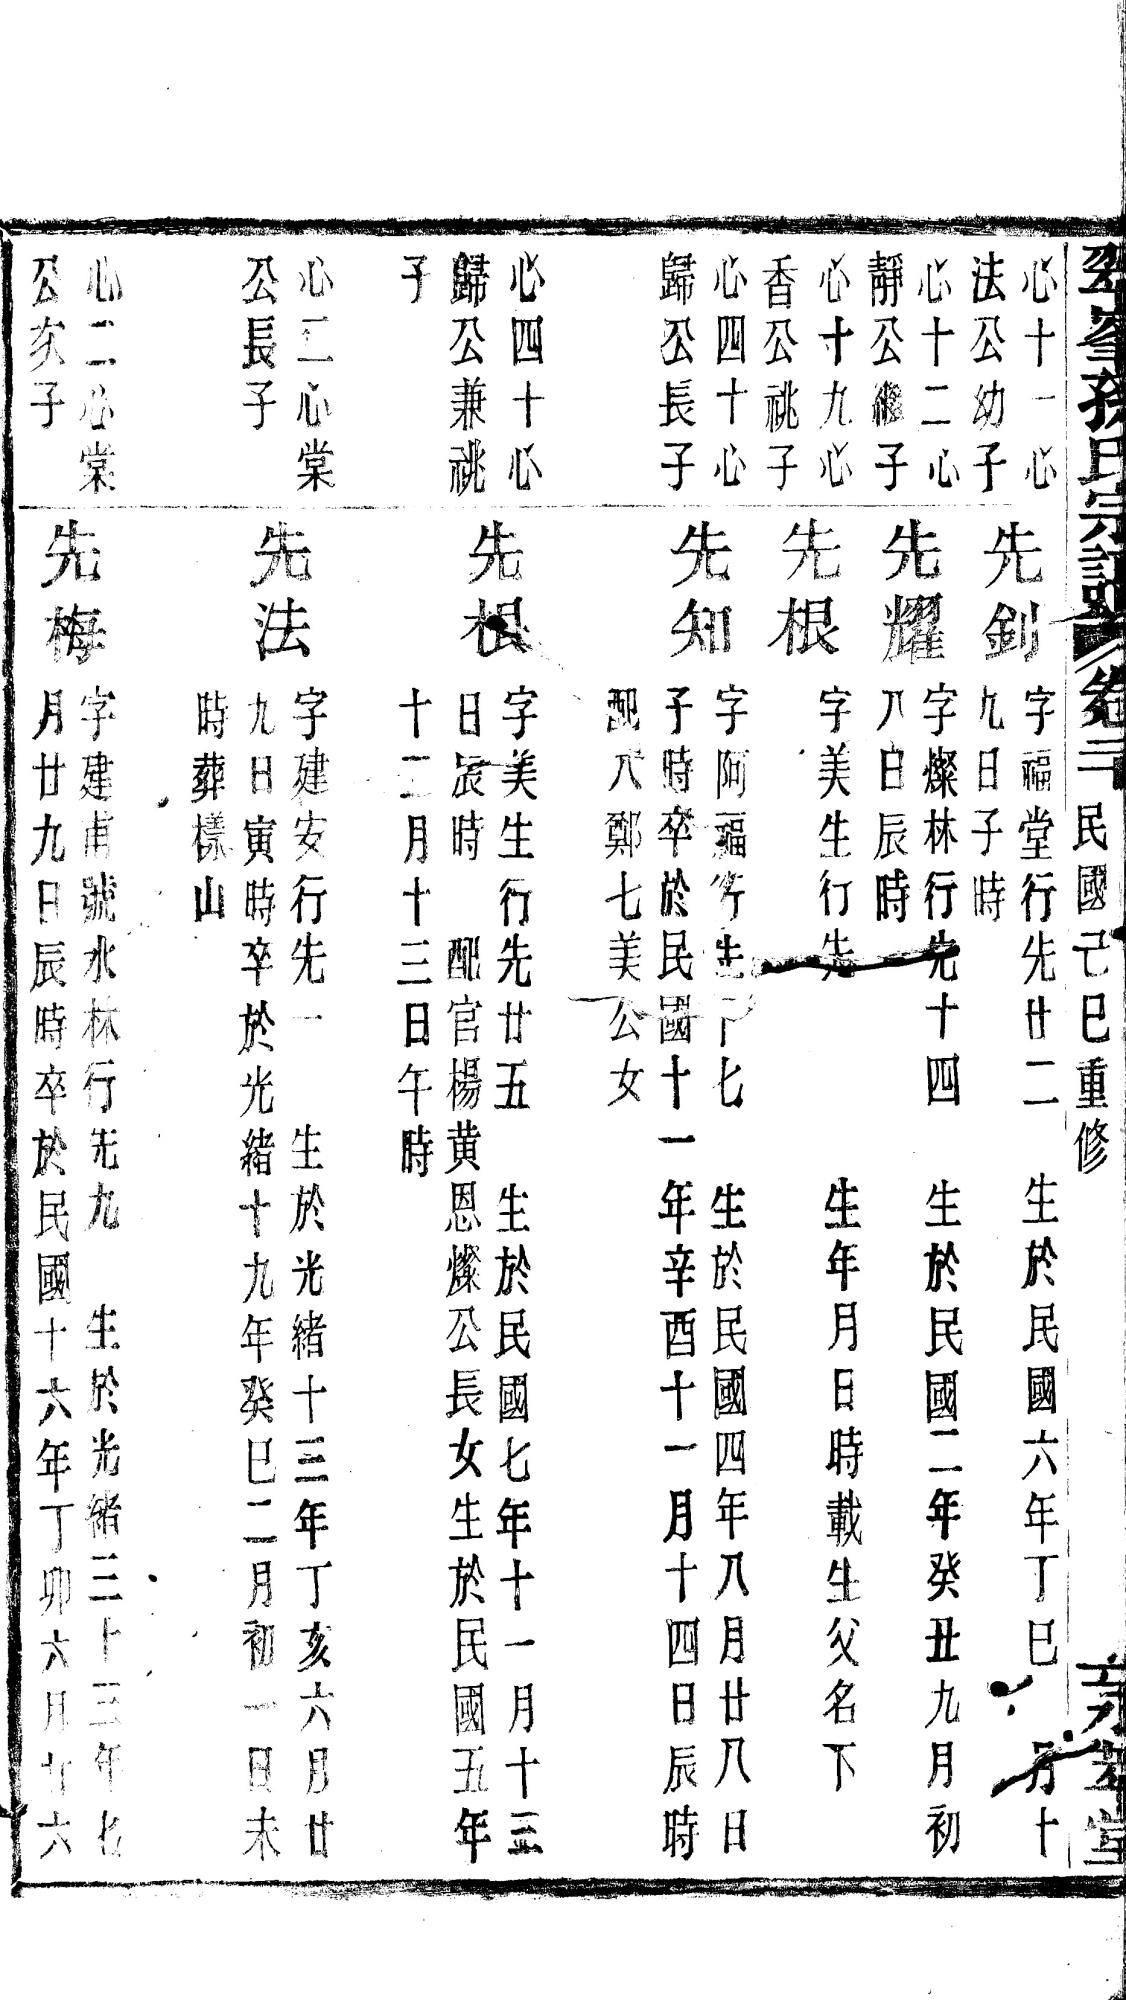 翠峯孫氏宗譜 卷二 民國己巳重修 堂
心十一心
法公幼子
先釗
字福堂行先廿二 生於民國六年丁巳 月十
九日子時
心十二心
靜公繼子
先耀
字燦林行先十四 生於民國二年癸丑九月初
八日辰時
心十九心
香公祧子
先根
字美生行先 生年月日時載生父名下
心四十心
歸公長子
先知
字阿福行先十七 生於民國四年八月廿八日
子時卒於民國十一年辛酉十一月十四日辰時
配八鄭七美公女
心四十心
歸公兼祧
子
先根
字美生行先廿五 生於民國七年十一月十三
日辰時 配官楊黃恩燦公長女生於民國五年
十二月十三日午時
心二心棠
公長子
先法
字建安行先一 生於光緒十三年丁亥六月廿
九日寅時卒於光緒十九年癸巳二月初一日未
時葬樣山
心二心棠
公次子
先梅
字建甫號水林行先九 生於光緒三十三年七
月廿九日辰時卒於民國十六年丁卯六月廿六